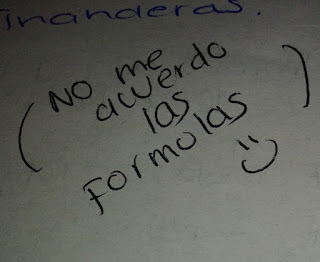 inanderas.
(NO me
acuerdo
las
Formolas
)